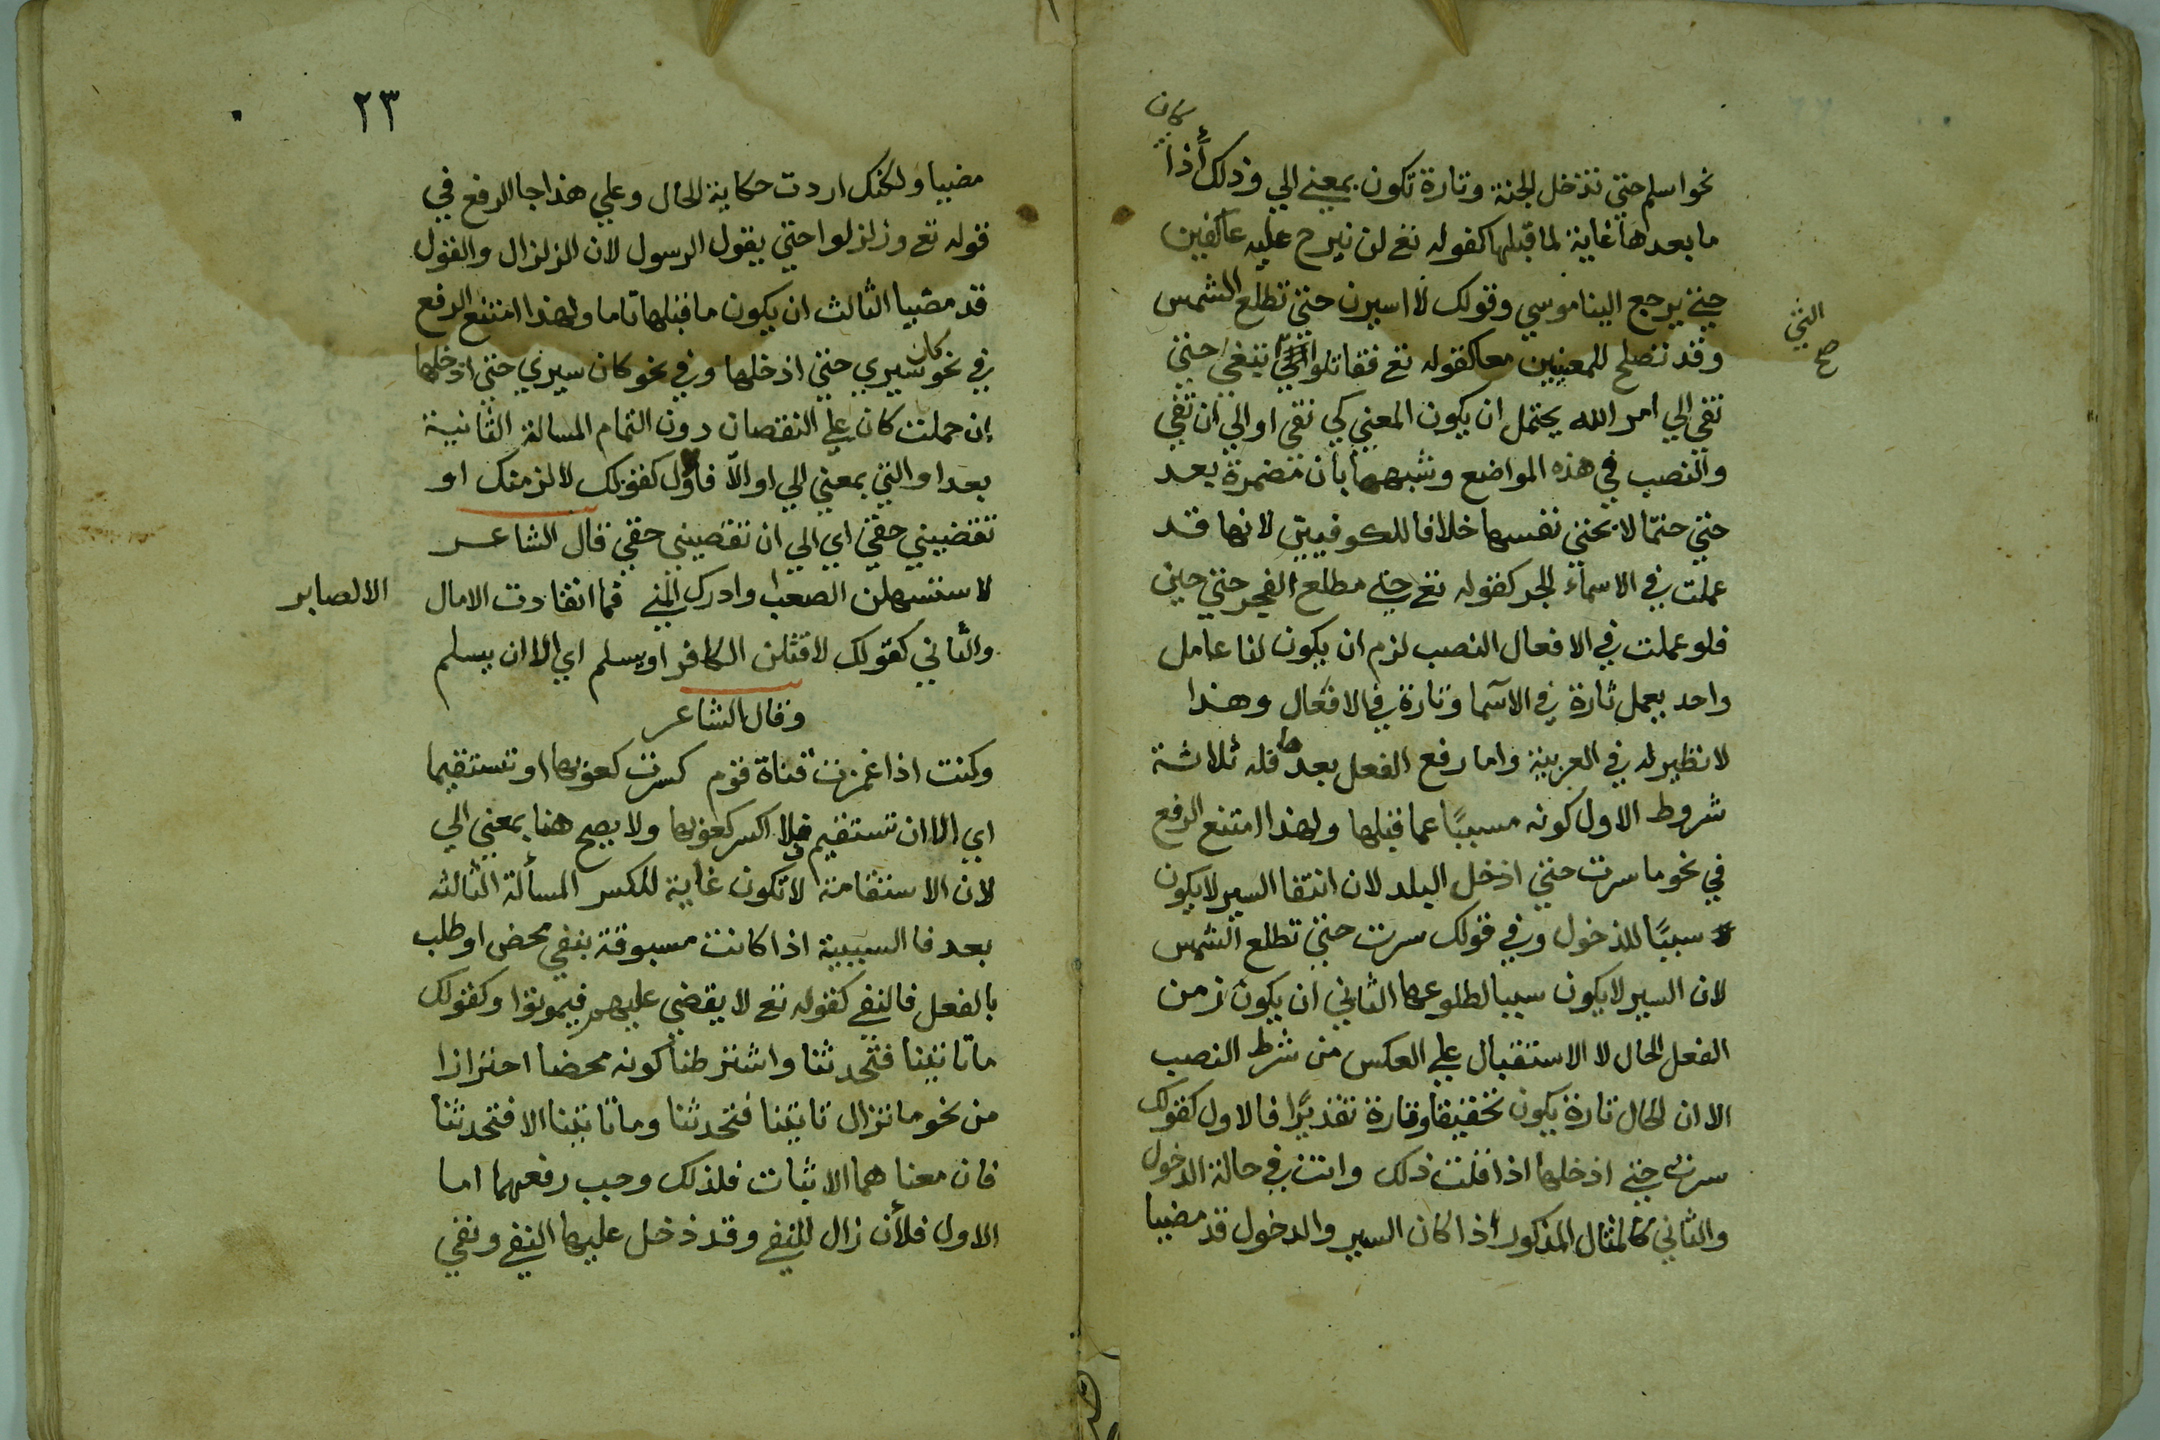 كان
نحو اسلم حتي تدخل الجنة وتارة تكون بمعني الي وذلك اذا
ما بعدها غاية لما قبلها كقوله تع لن نبرح عليه عاكفين
حتي يرجع الينا موسي وقولك لا اسيرن حتي تطلع الشمس
التي
صح
وقد تصلح للمعنيين معا كقوله تع فقاتلوا تبغي حتي
تفي الي امر الله يحتمل ان يكون المعني كي تفي او الي ان تفي
والنصب في هذه المواضع وشبهها بان مضمرة بعد
حتي حتما لا بحتي نفسها خلافا للكوفيين لانها قد
عملت في الاسماء الجر كقوله تع حتي مطلع الفجر حتي حين
فلو عملت في الافعال النصب لزم ان يكون لنا عامل
واحد يعمل تارة في الاسما وتارة في الافعال وهذا
لا نظير له في العربية واما رفع الفعل بعدها فله ثلاثة
شروط الاول كونه مسببًا عما قبلها ولهذا امتنع الرفع
في نحو ما سرت حتي ادخل البلد لان انتفا السير لا يكون
سببًا للدخول وفي قولك سرت حتي تطلع الشمس
لان السير لا يكون سببا لطلوعها الثاني ان يكون زمن
الفعل الحال لا الاستقبال علي العكس من شرط النصب
الا ان الحال تارة يكون تحقيقا وتارة تقديرًا فالاول كقولك
سرت حتي ادخلها اذا قلت ذلك وانت في حالة الدخول
والثاني كالمثال المذكور اذا كان السير والدخول قد مضيا
٢٣
مضيا ولكنك اردت حكاية الحال وعلي هذا جا الرفع في
قوله تع وزلزلوا حتي يقول الرسول لان الزلزال والقول
قد مضيا الثالث ان يكون ما قبلها تاما ولهذا امتنع الرفع
في نحو كان سيري حتي ادخلها وفي نحو كان سيري حتي ادخلها
ان حملت كان علي النقصان دون التمام المسالة الثانية
بعد او التي بمعني الي او الّا فاول كقولك لالزمنك او
تقضيني حقي اي الي ان تقضيني حقي قال الشاعر
لاستسهلن الصعب او ادرك المني فما انقادت الامال الا لصابر
والثاني كقولك لاقتلن الكافر او يسلم اي الا ان يسلم
وقال الشاعر
وكنت اذا غمزت قناة قوم كسرت كعوبها او تستقيما
اي الا ان تستقيم فلا اكسر كعوبها ولا يصح هنا بمعني الي
لان الاستقامة لا تكون غاية للكسر المسألة الثالثه
بعد فا السببية اذا كانت مسبوقة بنفي محض او طلب
بالفعل فالنفي كقوله تع لا يقضي عليهم فيموتوا وكقولك
ما تاتينا فتحدثنا واشترطنا كونه محضا احترازا
من نحو ما تزال تاتينا فتحدثنا وما تاتينا الا فتحدثنا
فان معناهما الاثبات فلذلك وجب رفعهما اما
الاول فلأن زال للنفي وقد دخل عليها النفي ونفي